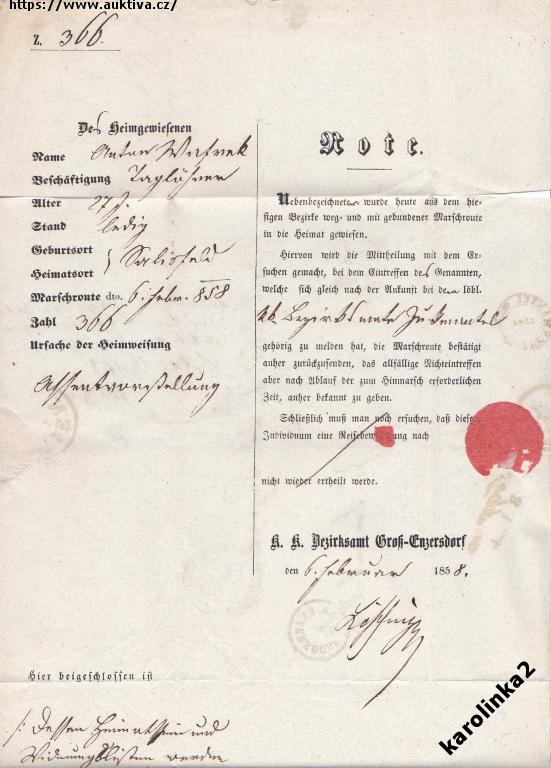 https://www.auktiva.cz/
Z. 366.
Des Heimgewiesenen
Name Anton
Beschäftigung Taglöhner
Alter 27 J.
Stand ledig
Geburtsort
Heimatsort
Marschroute dto. 6. Febr. 858
Zahl 366
Ursache der Heimweisung
Assentvorstellung
Note.
Nebenbezeichneter wurde heute aus dem hie-
sigen Bezirke weg- und mit gebundener Marschroute
in die Heimat gewiesen.
Hiervon wird die Mittheilung mit dem Er-
suchen gemacht, bei dem Eintreffen des Genannten,
welche sich gleich nach der Ankunft bei dem löbl.
kk. Bezirksamte
gehörig zu melden hat, die Marschroute bestätigt
anher zurückzusenden, das allfällige Nichteintreffen
aber nach Ablauf der zum Hinmarsch erforderlichen
Zeit, anher bekannt zu geben.
Schließlich muß man noch ersuchen, daß diesem
Individuum eine Reisebewilligung nach
nicht wieder ertheilt werde.
K. K. Bezirksamt Groß-Enzersdorf
den 6. Februar 1858.
Hier beigeschlossen ist
/: Dessen Heimathschein und
Widmungslisten werden
karolinka2